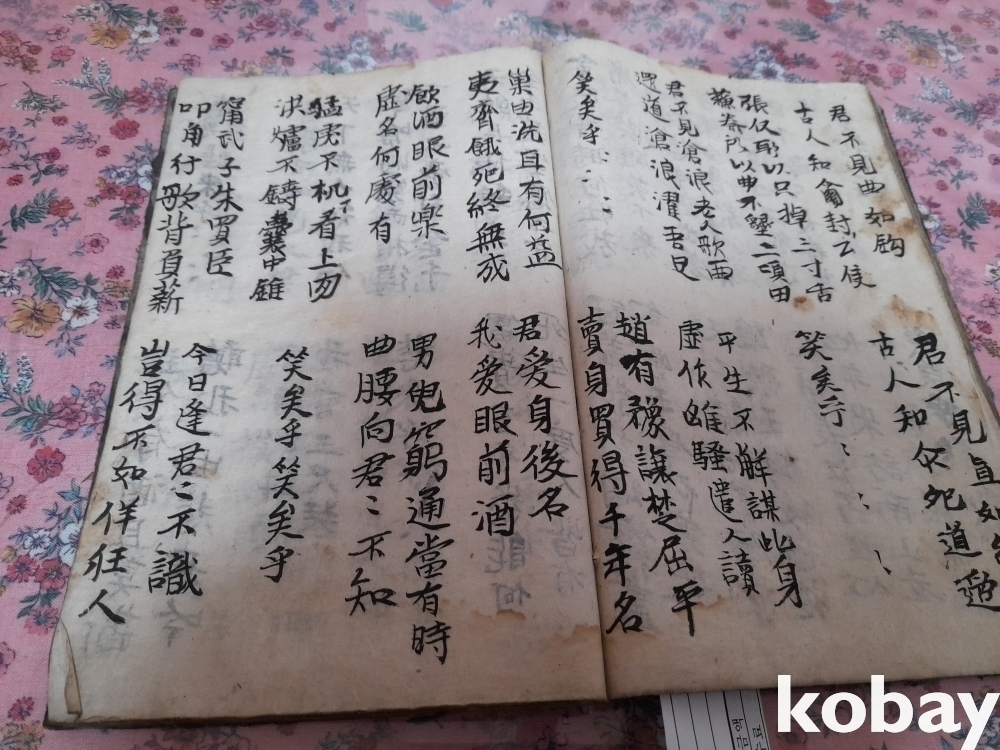 君不見曲如鈎
古人知侖封公侯
君不見直如
古人知尒死道邊
張仪所以只掉三寸舌
蘓秦所以不墾二頃田
笑矣乎ミミミ
君不見滄浪老人歌一曲
還道滄浪濯吾足
平生不解謀此身
虛作離騷遣人讀
笑矣乎ミミミ
趙有豫讓楚屈平
賣身買得千年名
巢由洗耳有何益
夷齊餓死終無成
君愛身後名
我愛眼前酒
飮酒眼前樂
虛名何處有
男兒窮通當有時
曲腰向君ミ不知
猛虎不机看上肉
洪爐不鑄囊中錐
笑矣乎笑矣乎
甯武子朱買臣
叩角行歌背負薪
今日逢君ミ不識
豈得不如佯狂人
kobay